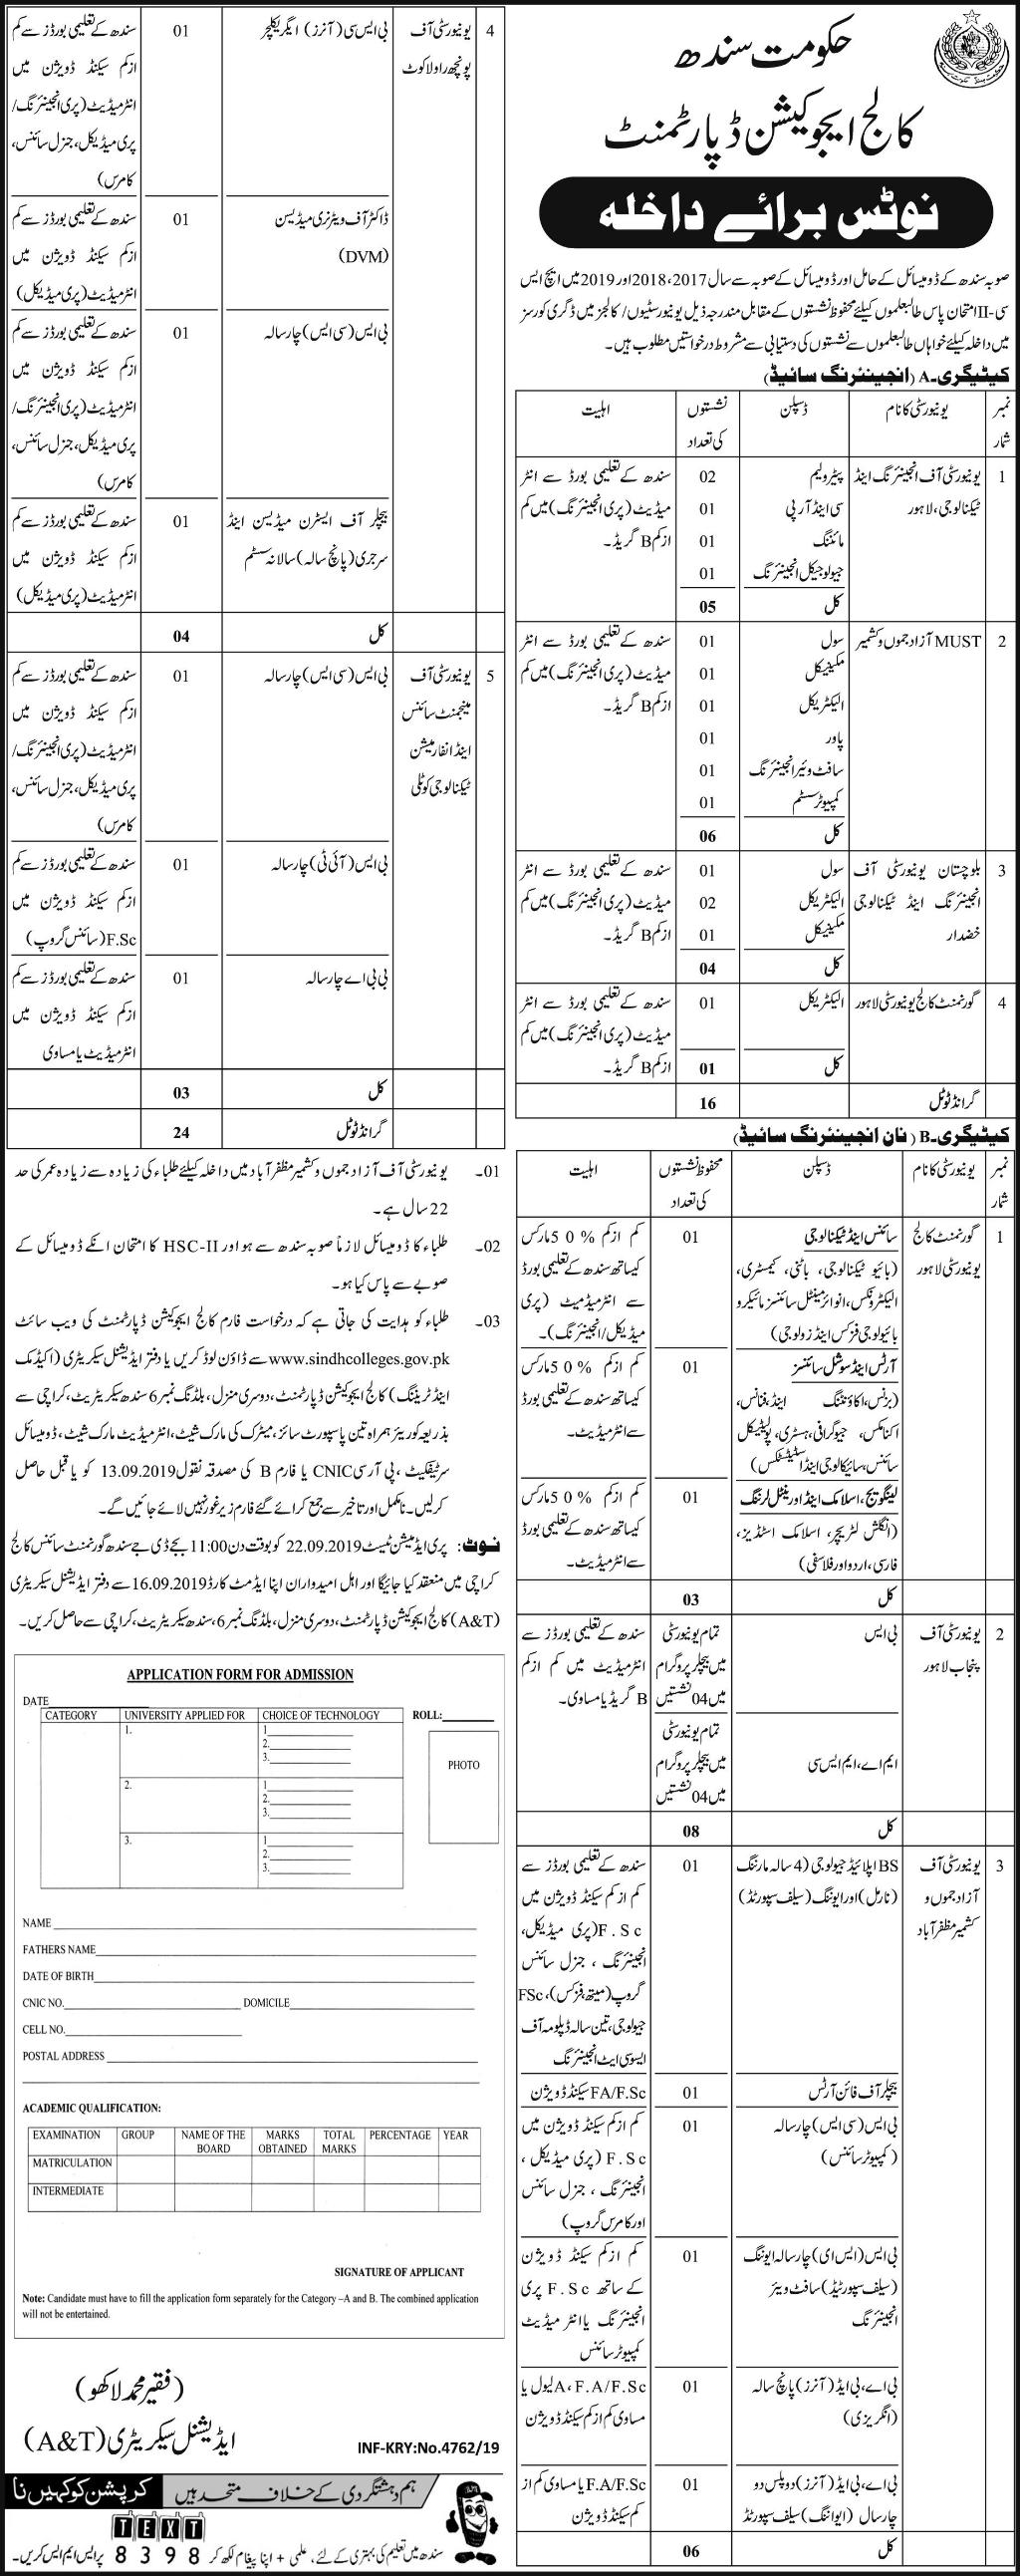 حکومت سندھ
کالج ایجوکیشن ڈپارٹمنٹ
نوٹس برائے داخلہ
صوبہ سندھ کے ڈومیسائل کے حامل اور ڈومیسائل کے صوبہ سے سال 2017، 2018 اور 2019 میں ایچ ایس
سی-II امتحان پاس طالبعلموں کیلئے محفوظ نشستوں کے مقابل مندرجہ ذیل یونیورسٹیوں/کالجز میں ڈگری کورسز
میں داخلہ کیلئے خواہاں طالبعلموں سے نشستوں کی دستیابی سے مشروط درخواستیں مطلوب ہیں۔
کیٹیگری-A (انجینئرنگ سائیڈ)
نمبر شمار | یونیورسٹی کا نام | ڈسپلن | نشستوں کی تعداد | اہلیت
1 | یونیورسٹی آف انجینئرنگ اینڈ ٹیکنالوجی، لاہور | پیٹرولیم | 02 | سندھ کے تعلیمی بورڈ سے انٹر میڈیٹ (پری انجینئرنگ) میں کم ازکم B گریڈ۔
سی اینڈ آر پی | 01
مائننگ | 01
جیولوجیکل انجینئرنگ | 01
کل | 05
2 | MUST آزاد جموں و کشمیر | سول | 01 | سندھ کے تعلیمی بورڈ سے انٹر میڈیٹ (پری انجینئرنگ) میں کم ازکم B گریڈ۔
مکینیکل | 01
الیکٹریکل | 01
پاور | 01
سافٹ ویئر انجینئرنگ | 01
کمپیوٹر سسٹم | 01
کل | 06
3 | بلوچستان یونیورسٹی آف انجینئرنگ اینڈ ٹیکنالوجی خضدار | سول | 01 | سندھ کے تعلیمی بورڈ سے انٹر میڈیٹ (پری انجینئرنگ) میں کم ازکم B گریڈ۔
الیکٹریکل | 02
مکینیکل | 01
کل | 04
4 | گورنمنٹ کالج یونیورسٹی لاہور | الیکٹریکل | 01 | سندھ کے تعلیمی بورڈ سے انٹر میڈیٹ (پری انجینئرنگ) میں کم ازکم B گریڈ۔
کل | 01
گرانڈ ٹوٹل | 16
کیٹیگری-B (نان انجینئرنگ سائیڈ)
نمبر شمار | یونیورسٹی کا نام | ڈسپلن | محفوظ نشستوں کی تعداد | اہلیت
1 | گورنمنٹ کالج یونیورسٹی لاہور | سائنس اینڈ ٹیکنالوجی (بائیو ٹیکنالوجی، باٹنی، کیمسٹری، الیکٹرونکس، انوائرمینٹل سائنسز مائیکرو بائیولوجی فزکس اینڈ زولوجی) | 01 | کم ازکم 50% مارکس کیساتھ سندھ کے تعلیمی بورڈ سے انٹرمیڈیٹ (پری میڈیکل/انجینئرنگ)۔
آرٹس اینڈ سوشل سائنسز (بزنس، اکاؤنٹنگ اینڈ فنانس، اکنامکس، جیوگرافی، ہسٹری، پولیٹیکل سائنس، سائیکالوجی اینڈ اسٹیٹسٹکس) | 01 | کم ازکم 50% مارکس کیساتھ سندھ کے تعلیمی بورڈ سے انٹرمیڈیٹ۔
لینگویج، اسلامک اینڈ اورینٹل لرننگ (انگلش لٹریچر، اسلامک اسٹڈیز، فارسی، اردو اور فلاسفی) | 01 | کم ازکم 50% مارکس کیساتھ سندھ کے تعلیمی بورڈ سے انٹرمیڈیٹ۔
کل | 03
2 | یونیورسٹی آف پنجاب لاہور | بی ایس | تمام یونیورسٹی میں بیچلر پروگرام میں 04 نشستیں | سندھ کے تعلیمی بورڈز سے انٹرمیڈیٹ میں کم ازکم B گریڈ یا مساوی۔
ایم اے، ایم ایس سی | تمام یونیورسٹی میں بیچلر پروگرام میں 04 نشستیں
کل | 08
3 | یونیورسٹی آف آزاد جموں و کشمیر مظفرآباد | BS اپلائیڈ جیولوجی (4 سالہ مارننگ (نارمل) اور ایوننگ (سیلف سپورٹڈ) | 01 | سندھ کے تعلیمی بورڈز سے کم ازکم سیکنڈ ڈویژن میں F.Sc (پری میڈیکل، انجینئرنگ، جنرل سائنس گروپ (میتھ، فزکس)، FSc جیولوجی، تین سالہ ڈپلومہ آف ایسوسی ایٹ انجینئرنگ
بیچلر آف فائن آرٹس | 01 | FA/F.Sc سیکنڈ ڈویژن
بی ایس (سی ایس) چار سالہ (کمپیوٹر سائنس) | 01 | کم ازکم سیکنڈ ڈویژن میں F.Sc (پری میڈیکل، انجینئرنگ، جنرل سائنس اور کامرس گروپ)
بی ایس (ایس ای) چار سالہ ایوننگ (سیلف سپورٹڈ) سافٹ ویئر انجینئرنگ | 01 | کم ازکم سیکنڈ ڈویژن کے ساتھ F.Sc پری انجینئرنگ یا انٹر میڈیٹ کمپیوٹر سائنس
بی اے، بی ایڈ (آنرز) پانچ سالہ (انگریزی) | 01 | A، F.A/F.Sc لیول یا مساوی کم ازکم سیکنڈ ڈویژن
بی اے، بی ایڈ (آنرز) دو پلس دو چار سال (ایوانگ) سیلف سپورٹڈ | 01 | F.A/F.Sc یا مساوی کم از کم سیکنڈ ڈویژن
کل | 06
4 | یونیورسٹی آف پونچھ راولا کوٹ | بی ایس سی (آنرز) ایگریکلچر | 01 | سندھ کے تعلیمی بورڈز سے کم ازکم سیکنڈ ڈویژن میں انٹرمیڈیٹ (پری انجینئرنگ/پری میڈیکل، جنرل سائنس، کامرس)
ڈاکٹر آف ویٹرنری میڈیسن (DVM) | 01 | سندھ کے تعلیمی بورڈز سے کم ازکم سیکنڈ ڈویژن میں انٹرمیڈیٹ (پری میڈیکل)
بی ایس (سی ایس) چار سالہ | 01 | سندھ کے تعلیمی بورڈز سے کم ازکم سیکنڈ ڈویژن میں انٹرمیڈیٹ (پری انجینئرنگ/پری میڈیکل، جنرل سائنس، کامرس)
بیچلر آف ایسٹرن میڈیسن اینڈ سرجری (پانچ سالہ) سالانہ سسٹم | 01 | سندھ کے تعلیمی بورڈز سے کم ازکم سیکنڈ ڈویژن میں انٹرمیڈیٹ (پری میڈیکل)
کل | 04
5 | یونیورسٹی آف مینجمنٹ سائنس اینڈ انفارمیشن ٹیکنالوجی کوٹلی | بی ایس (سی ایس) چار سالہ | 01 | سندھ کے تعلیمی بورڈز سے کم ازکم سیکنڈ ڈویژن میں انٹرمیڈیٹ (پری انجینئرنگ/پری میڈیکل، جنرل سائنس، کامرس)
بی ایس (آئی ٹی) چار سالہ | 01 | سندھ کے تعلیمی بورڈز سے کم ازکم سیکنڈ ڈویژن میں F.Sc (سائنس گروپ)
بی بی اے چار سالہ | 01 | سندھ کے تعلیمی بورڈز سے کم ازکم سیکنڈ ڈویژن میں انٹرمیڈیٹ یا مساوی
کل | 03
گرانڈ ٹوٹل | 24
01۔ یونیورسٹی آف آزاد جموں و کشمیر مظفرآباد میں داخلہ کیلئے طلباء کی زیادہ سے زیادہ عمر کی حد
22 سال ہے۔
02۔ طلباء کا ڈومیسائل لازماً صوبہ سندھ سے ہو اور HSC-II کا امتحان انکے ڈومیسائل کے
صوبے سے پاس کیا ہو۔
03۔ طلباء کو ہدایت کی جاتی ہے کہ درخواست فارم کالج ایجوکیشن ڈپارٹمنٹ کی ویب سائٹ
www.sindhcolleges.gov.pk سے ڈاؤن لوڈ کریں یا دفتر ایڈیشنل سیکریٹری (اکیڈمک
اینڈ ٹریننگ) کالج ایجوکیشن ڈپارٹمنٹ، دوسری منزل، بلڈنگ نمبر 6 سندھ سیکریٹریٹ، کراچی سے
بذریعہ کوریئر ہمراہ تین پاسپورٹ سائز، میٹرک کی مارک شیٹ، انٹرمیڈیٹ مارک شیٹ، ڈومیسائل
سرٹیفکیٹ، پی آر سی CNIC یا فارم B کی مصدقہ نقول 13.09.2019 کو یا قبل حاصل
کرلیں۔ نامکمل اور تاخیر سے جمع کرائے گئے فارم زیر غور نہیں لائے جائیں گے۔
نوٹ: پری ایڈمیشن ٹیسٹ 22.09.2019 کو بوقت دن 11:00 بجے ڈی جے سندھ گورنمنٹ سائنس کالج
کراچی میں منعقد کیا جائیگا اور اہل امیدواران اپنا ایڈمٹ کارڈ 16.09.2019 سے دفتر ایڈیشنل سیکریٹری
(A&T) کالج ایجوکیشن ڈپارٹمنٹ، دوسری منزل، بلڈنگ نمبر 6، سندھ سیکریٹریٹ، کراچی سے حاصل کریں۔
APPLICATION FORM FOR ADMISSION
DATE
CATEGORY | UNIVERSITY APPLIED FOR | CHOICE OF TECHNOLOGY
ROLL:
PHOTO
1. | 1 2. 3.
2. | 1 2. 3.
3. | 1 2. 3.
NAME
FATHERS NAME
DATE OF BIRTH
CNIC NO. DOMICILE
CELL NO.
POSTAL ADDRESS
ACADEMIC QUALIFICATION:
EXAMINATION | GROUP | NAME OF THE BOARD | MARKS OBTAINED | TOTAL MARKS | PERCENTAGE | YEAR
MATRICULATION
INTERMEDIATE
SIGNATURE OF APPLICANT
Note: Candidate must have to fill the application form separately for the Category –A and B. The combined application
will not be entertained.
(فقیر محمد لاکھو)
ایڈیشنل سیکریٹری (A&T)
INF-KRY:No.4762/19
ہم دہشتگردی کے خلاف متحد ہیں
کرپشن کو کہیں نا
TEXT
سندھ میں تعلیم کی بہتری کے لئے، علمی + اپنا پیغام لکھ کر 8398 پر ایس ایم ایس کریں۔